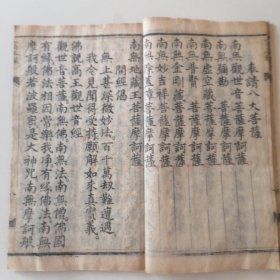 奉請八大菩薩
南無觀世音菩薩摩訶薩
南無彌勒菩薩摩訶薩
南無虛空藏菩薩摩訶薩
南無普賢菩薩摩訶薩
南無金剛藏菩薩摩訶薩
南無妙吉祥菩薩摩訶薩
南無除蓋障菩薩摩訶薩
南無地藏王菩薩摩訶薩
開經偈
無上甚深微妙法百千萬劫難遭遇
我今見聞得受持願解如來真實義
佛說高王觀世音經
觀世音菩薩南無佛南無法南無僧佛國
有緣佛法相因常樂我淨有緣佛法南無
摩訶般若波羅蜜是大神咒南無摩訶般